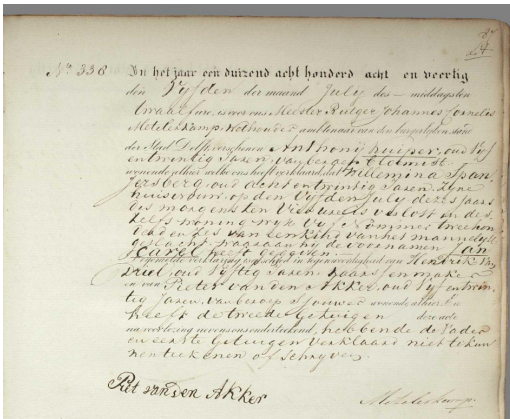 No. 336
In het jaar een duizend acht honderd acht en veertig
den Vijfden der maand July des middags ten
twaalf ure, is voor ons Meester Rutger Johannes Cornelis
Metelerkamp Wethouder ambtenaar van den burgerlijken stand
der Stad Delft verschenen Anthony Kuiper, oud Vijf
en twintig Jaren, van beroep
wonende alhier welke ons heeft verklaard, dat Willemina Span
Jersberg, oud acht en twintig Jaren, Zijne
huisvrouw, op den Vijfden July dezes Jaars
des morgens ten Vier ure is verlost in des
zelfs woning wijk Vijf Nommer twee hon
derd en zes van een kind van het mannelijk
geslacht, waaraan hij de voornamen Jan
Carel heeft gegeven.
in tegenwoordigheid van Hendrik
oud Vijftig Jaren,
en van Pieter van den Akker, oud Vijf en twin
tig Jaren, van beroep Sjouwer wonende alhier. En
heeft de tweede getuigen deze acte
na voorlezing nevens ons onderteekend, hebbende de Vader
en eerste getuigen verklaard niet te kun
nen teekenen of schrijven
Piet van den Akker
Metelerkamp